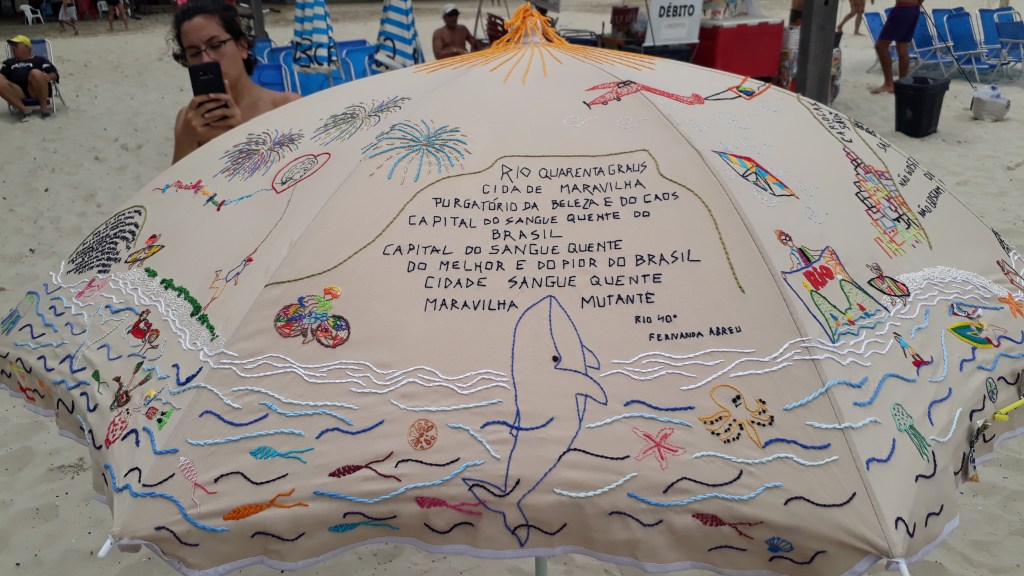 DÉBITO
RIO QUARENTA GRAUS
CIDADE MARAVILHA
PURGATÓRIO DA BELEZA E DO CAOS
CAPITAL DO SANGUE QUENTE DO
BRASIL
CAPITAL DO SANGUE QUENTE
DO MELHOR E DO PIOR DO BRASIL
CIDADE SANGUE QUENTE
MARAVILHA MUTANTE
RIO 40°
FERNANDA ABREU
RIO